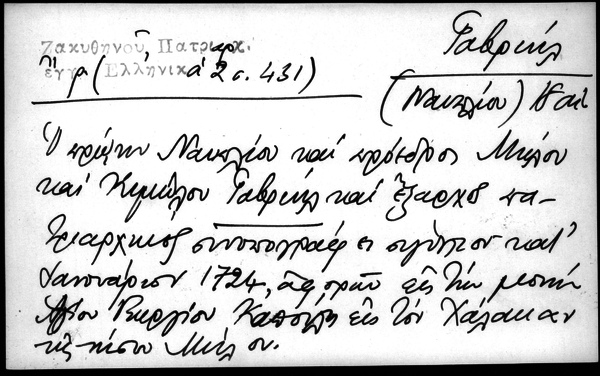 Ζακυθηνοῦ, Πατριαρχ.
ἔγγρ. Ἑλληνικά
(σ. 431)
Γαβριήλ
(Ναυπλίου) 18 αἰ.
Ὁ πρώην Ναυπλίου καί πρόεδρος Μήλου
καί Κιμώλου Γαβριήλ καί ἔξαρχος πα-
τριαρχικός συνυπογράφει κατ'
Ἰανουάριον 1724, ἀφορῶν εἰς τήν μονήν
Ἁγίου Γεωργίου εἰς τόν Χάλακαν
τῆς νήσου Μήλου.